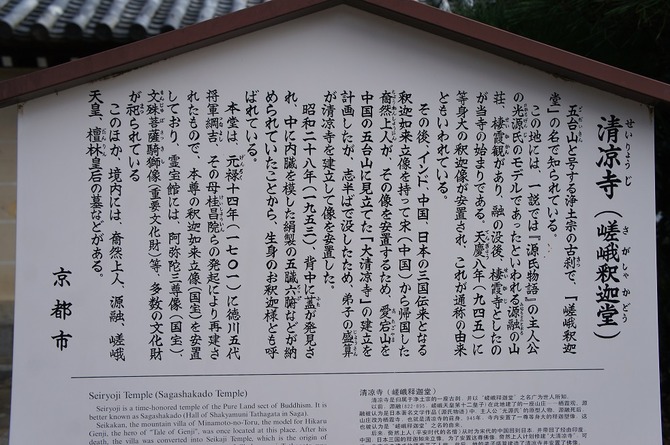 清凉寺（嵯峨釈迦堂）
せいりょうじ
さがしゃかどう
五台山と号する浄土宗の古刹で、「嵯峨釈迦
堂」の名で知られている。
この地には、一説では『源氏物語』の主人公
の光源氏のモデルであったといわれる源融の山
荘、棲霞観があり、融の没後、棲霞寺としたの
が当寺の始まりである。天慶八年（九四五）に
等身大の釈迦像が安置され、これが通称の由来
ともいわれている。
その後、インド、中国、日本の三国伝来となる
釈迦如来立像を持って宋（中国）から帰国した
奝然上人が、その像を安置するため、愛宕山を
中国の五台山に見立てた「大清凉寺」の建立を
計画したが、志半ばで没したため、弟子の盛算
が清凉寺を建立して像を安置した。
昭和二十八年（一九五三）、背中に蓋が発見さ
れ、中に内臓を模した絹製の五臓六腑などが納
められていたことから、生身のお釈迦様とも呼
ばれている。
本堂は、元禄十四年（一七〇一）に徳川五代
将軍綱吉、その母桂昌院らの発起により再建さ
れたもので、本尊の釈迦如来立像（国宝）を安置
しており、霊宝館には、阿弥陀三尊像（国宝）、
文殊菩薩騎獅像（重要文化財）等、多数の文化財
が祀られている
このほか、境内には、奝然上人、源融、嵯峨
天皇、檀林皇后の墓などがある。
京都市
Seiryoji Temple (Sagashakado Temple)
Seiryoji is a time-honored temple of the Pure Land sect of Buddhism. It is
better known as Sagashakado (Hall of Shakyamuni Tathagata in Saga).
Seikakan, the mountain villa of Minamoto-no-Toru, the model for Hikaru
Genji, the hero of "Tale of Genji", was once located at this place. After his
death, the villa was converted into Seikaji Temple, which is the origin of
清凉寺（嵯峨释迦堂）